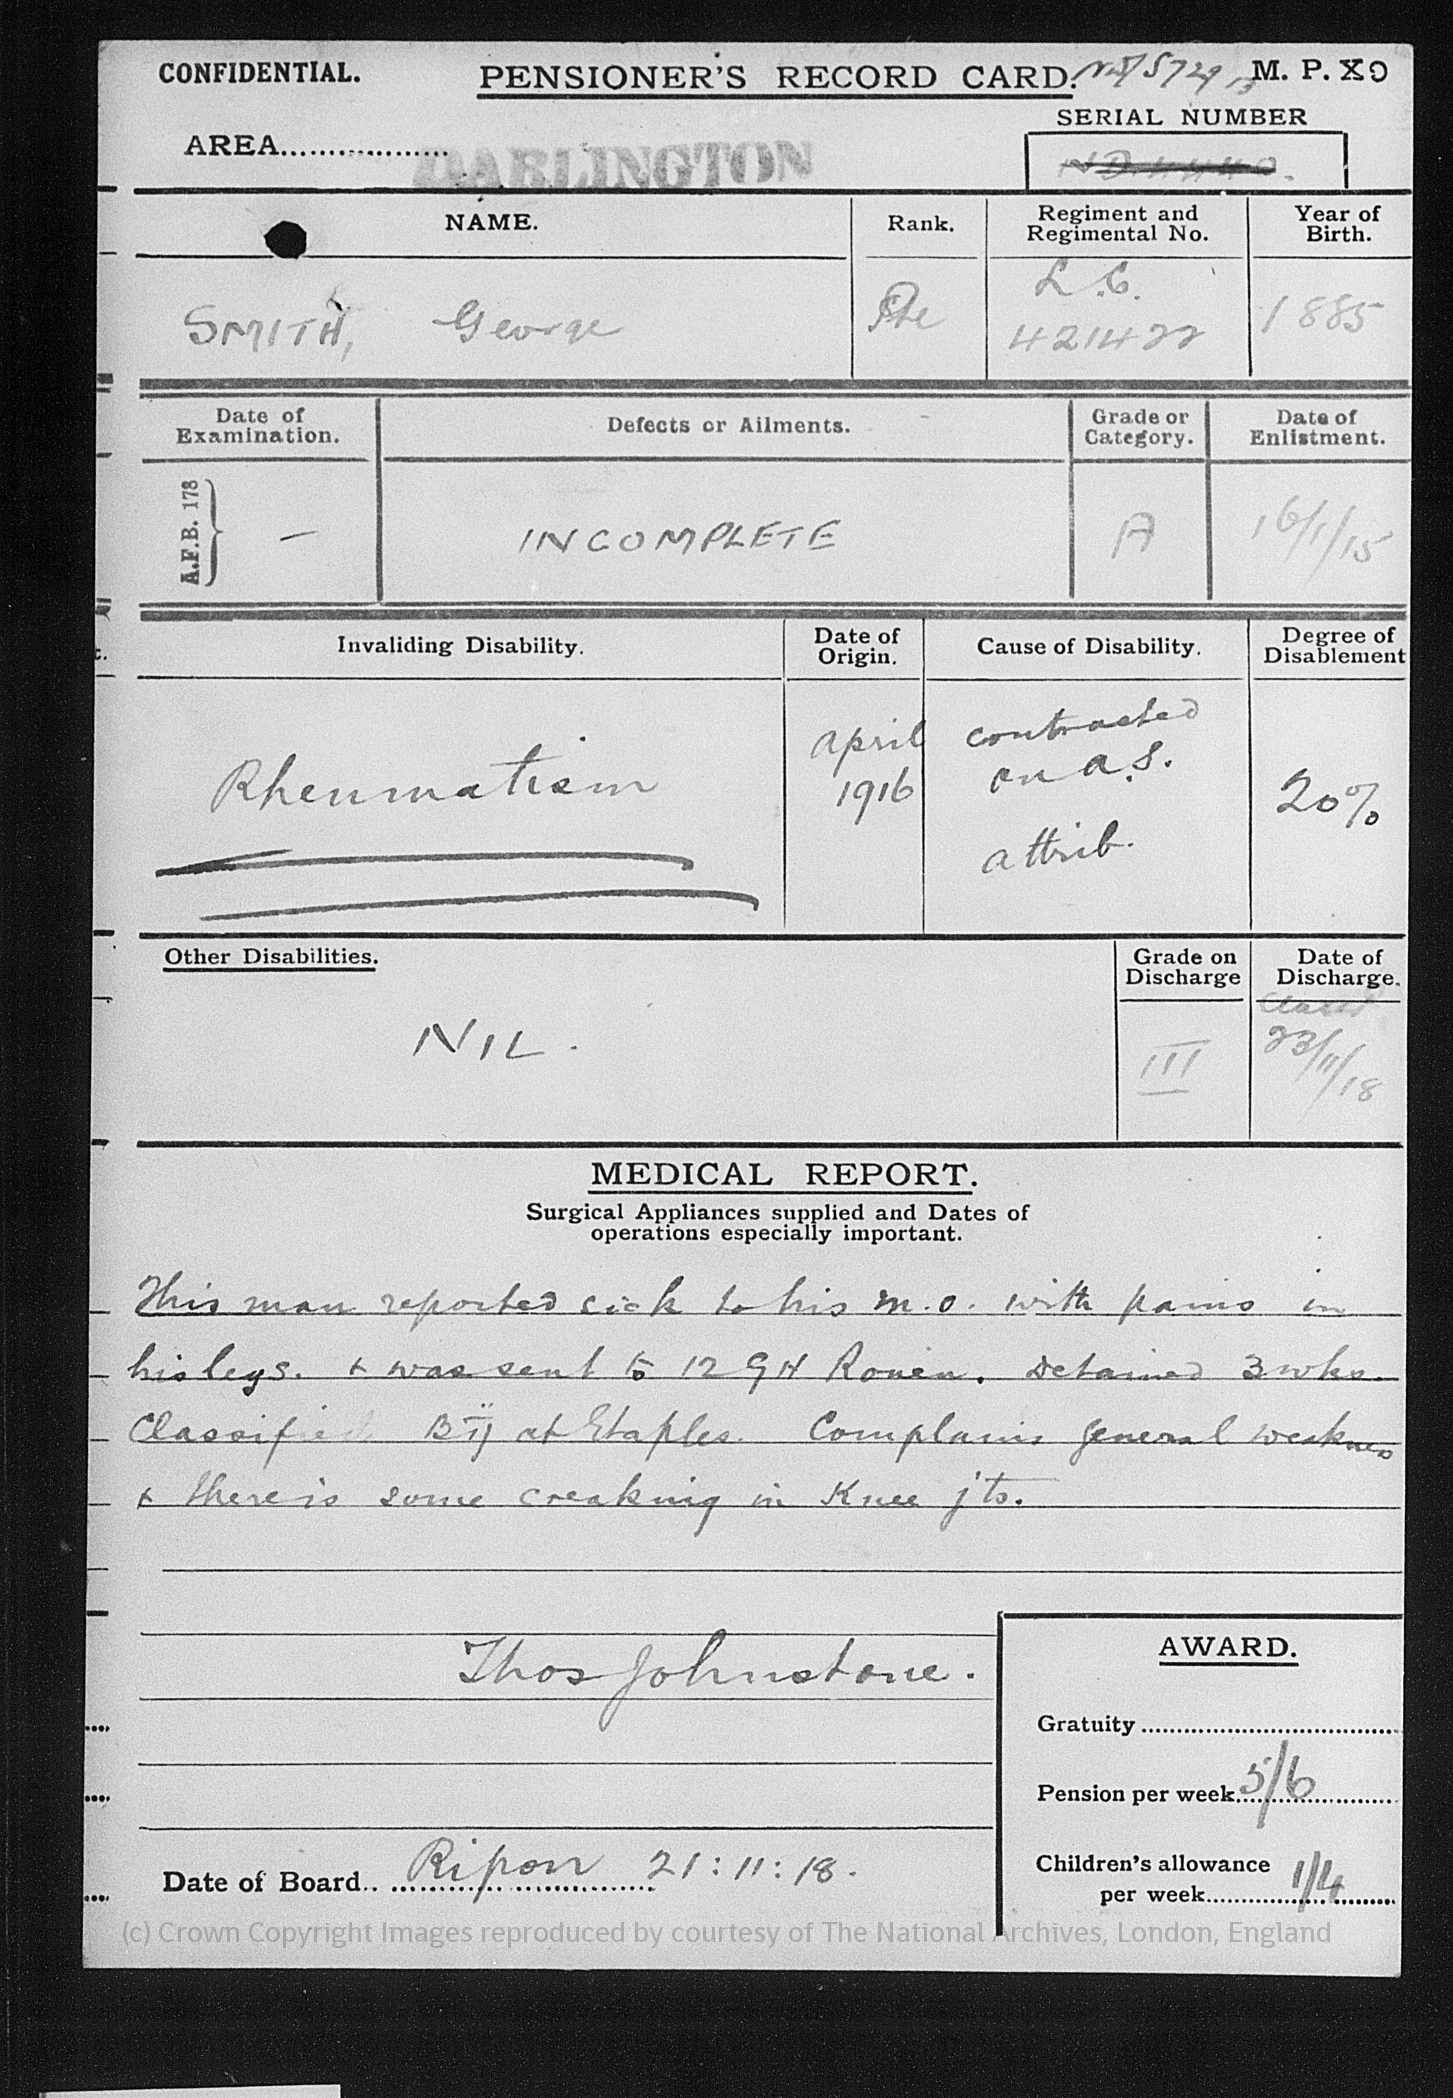 CONFIDENTIAL.
PENSIONER'S RECORD CARD.
M. P. X9
SERIAL NUMBER
AREA..................
DARLINGTON
NAME.
Rank.
Regiment and
Regimental No.
Year of
Birth.
SMITH, George
Pte
L.C.
421422
1885
Date of
Examination.
Defects or Ailments.
Grade or
Category.
Date of
Enlistment.
A.F.B. 178
—
INCOMPLETE
A
16/1/15
Invaliding Disability.
Date of
Origin.
Cause of Disability.
Degree of
Disablement
Rheumatism
April
1916
contracted
on a.s.
attrib.
20%
Other Disabilities.
Grade on
Discharge
Date of
Discharge.
NIL.
III
23/11/18
MEDICAL REPORT.
Surgical Appliances supplied and Dates of
operations especially important.
This man reported sick to his M.O. with pains in
his legs. & was sent to 12 GH Rouen. Detained 3 wks.
Classified Bii at Etaples. Complains general weakness
& there is some creaking in Knee jts.
Thos Johnstone.
AWARD.
Gratuity
Pension per week 5/6
Children's allowance
per week 1/4
Date of Board.. Ripon 21:11:18.
(c) Crown Copyright Images reproduced by courtesy of The National Archives, London, England